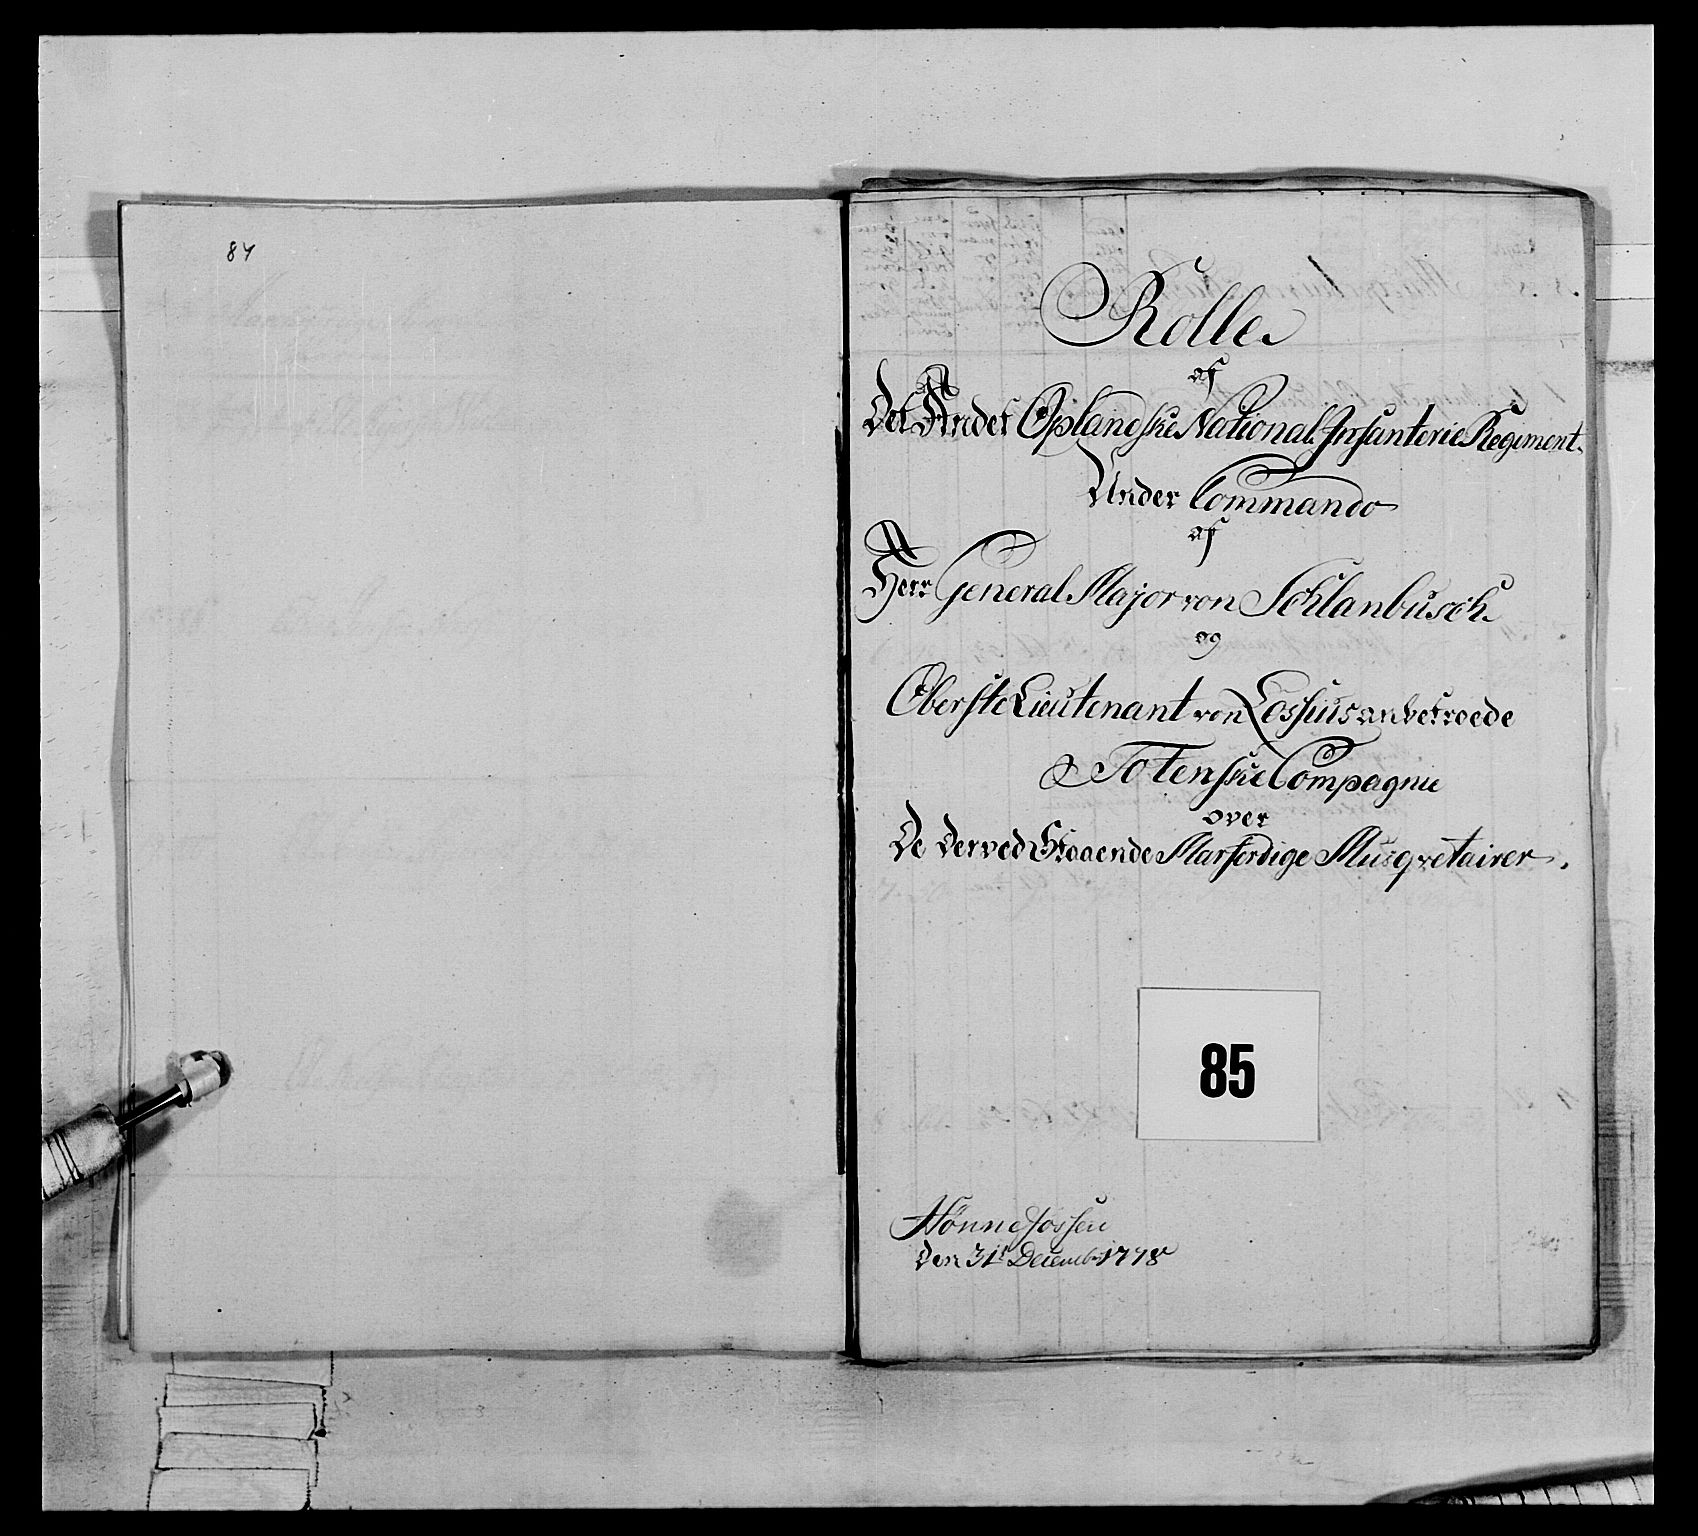 84
Rolle
af
Det Andet Oplandske National Infanterie Regiment
Under Commando
af
Herr General Major von Schlanbusch
og
Oberste Lieutenant von Lossius anbetroede
Totenske Compagnie
over
De derved Staaende Marferdige Musqvetairer.
85
Hönnefossen
Den 31te Decemb. 1778